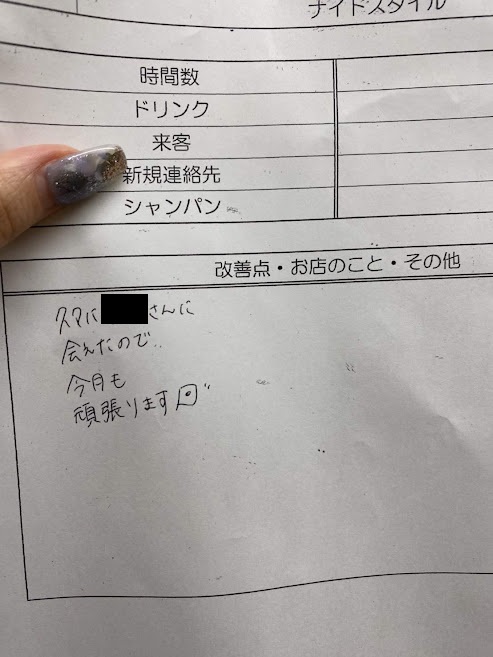 ナイトスタイル
時間数
ドリンク
来客
新規連絡先
シャンパン
改善点・お店のこと・その他
さんに
会えたので..
今月も
頑張ります